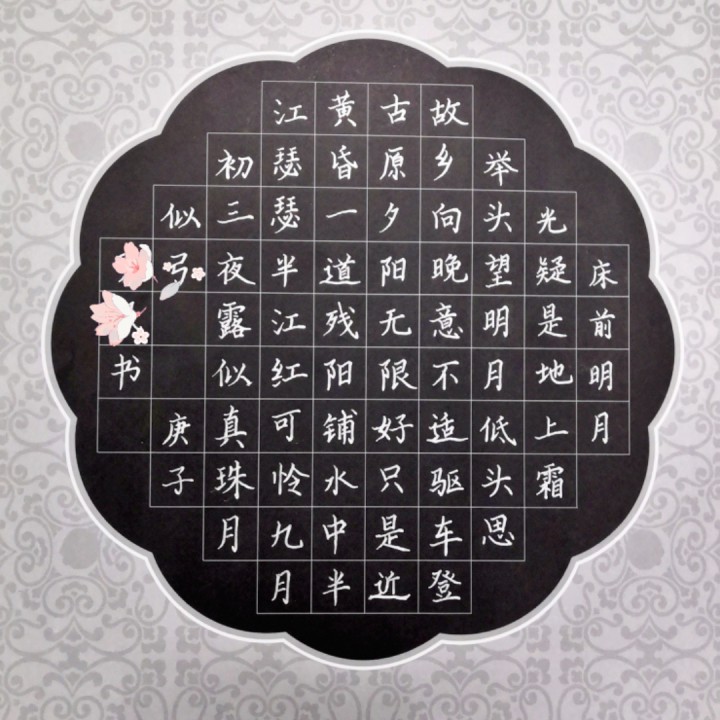 床前明月
光疑是地上霜
举头望明月低头思
故乡向晚意不适驱车登
古原夕阳无限好只是近
黄昏一道残阳铺水中半
江瑟瑟半江红可怜九月
初三夜露似真珠月
似弓 庚子
书